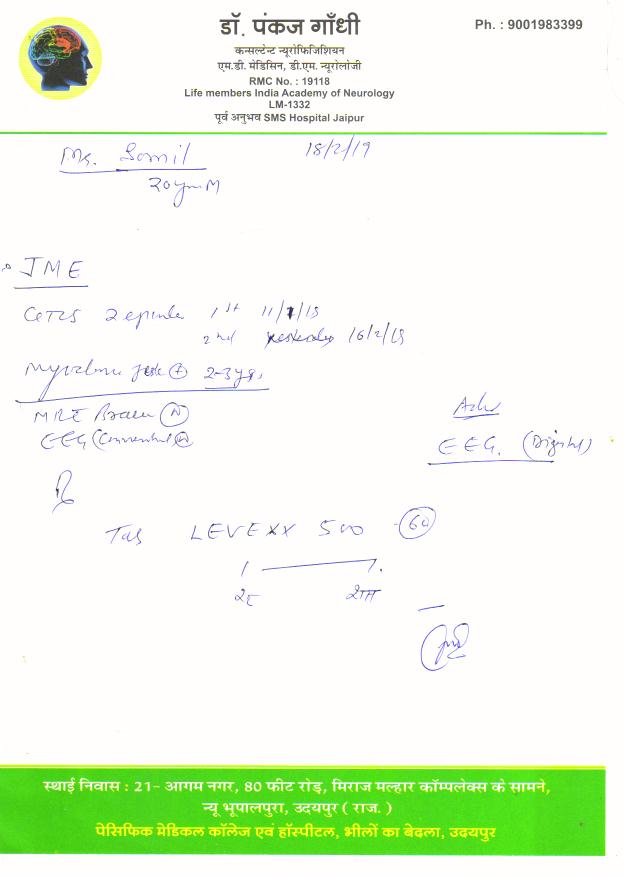 डॉ. पंकज गाँधी
Ph. : 9001983399
कन्सल्टेन्ट न्यूरोफिजिशियन
एम.डी. मेडिसिन, डी.एम. न्यूरोलॉजी
RMC No. : 19118
Life members India Academy of Neurology
LM-1332
पूर्व अनुभव SMS Hospital Jaipur
Mr. Somil 18/2/19
20 yrs M
JME
GTCS 2 episodes 1st
2nd yesterday
2-3 yrs
MRI Brain (N)
EEG (Conventional) (N)
Adv
EEG. (Digital)
Rx
Tab LEVEXX 500 (60)
1 1
स्थाई निवास : 21- आगम नगर, 80 फीट रोड़, मिराज मल्हार कॉम्पलेक्स के सामने,
न्यू भूपालपुरा, उदयपुर ( राज. )
पेसिफिक मेडिकल कॉलेज एवं हॉस्पीटल, भीलों का बेदला, उदयपुर